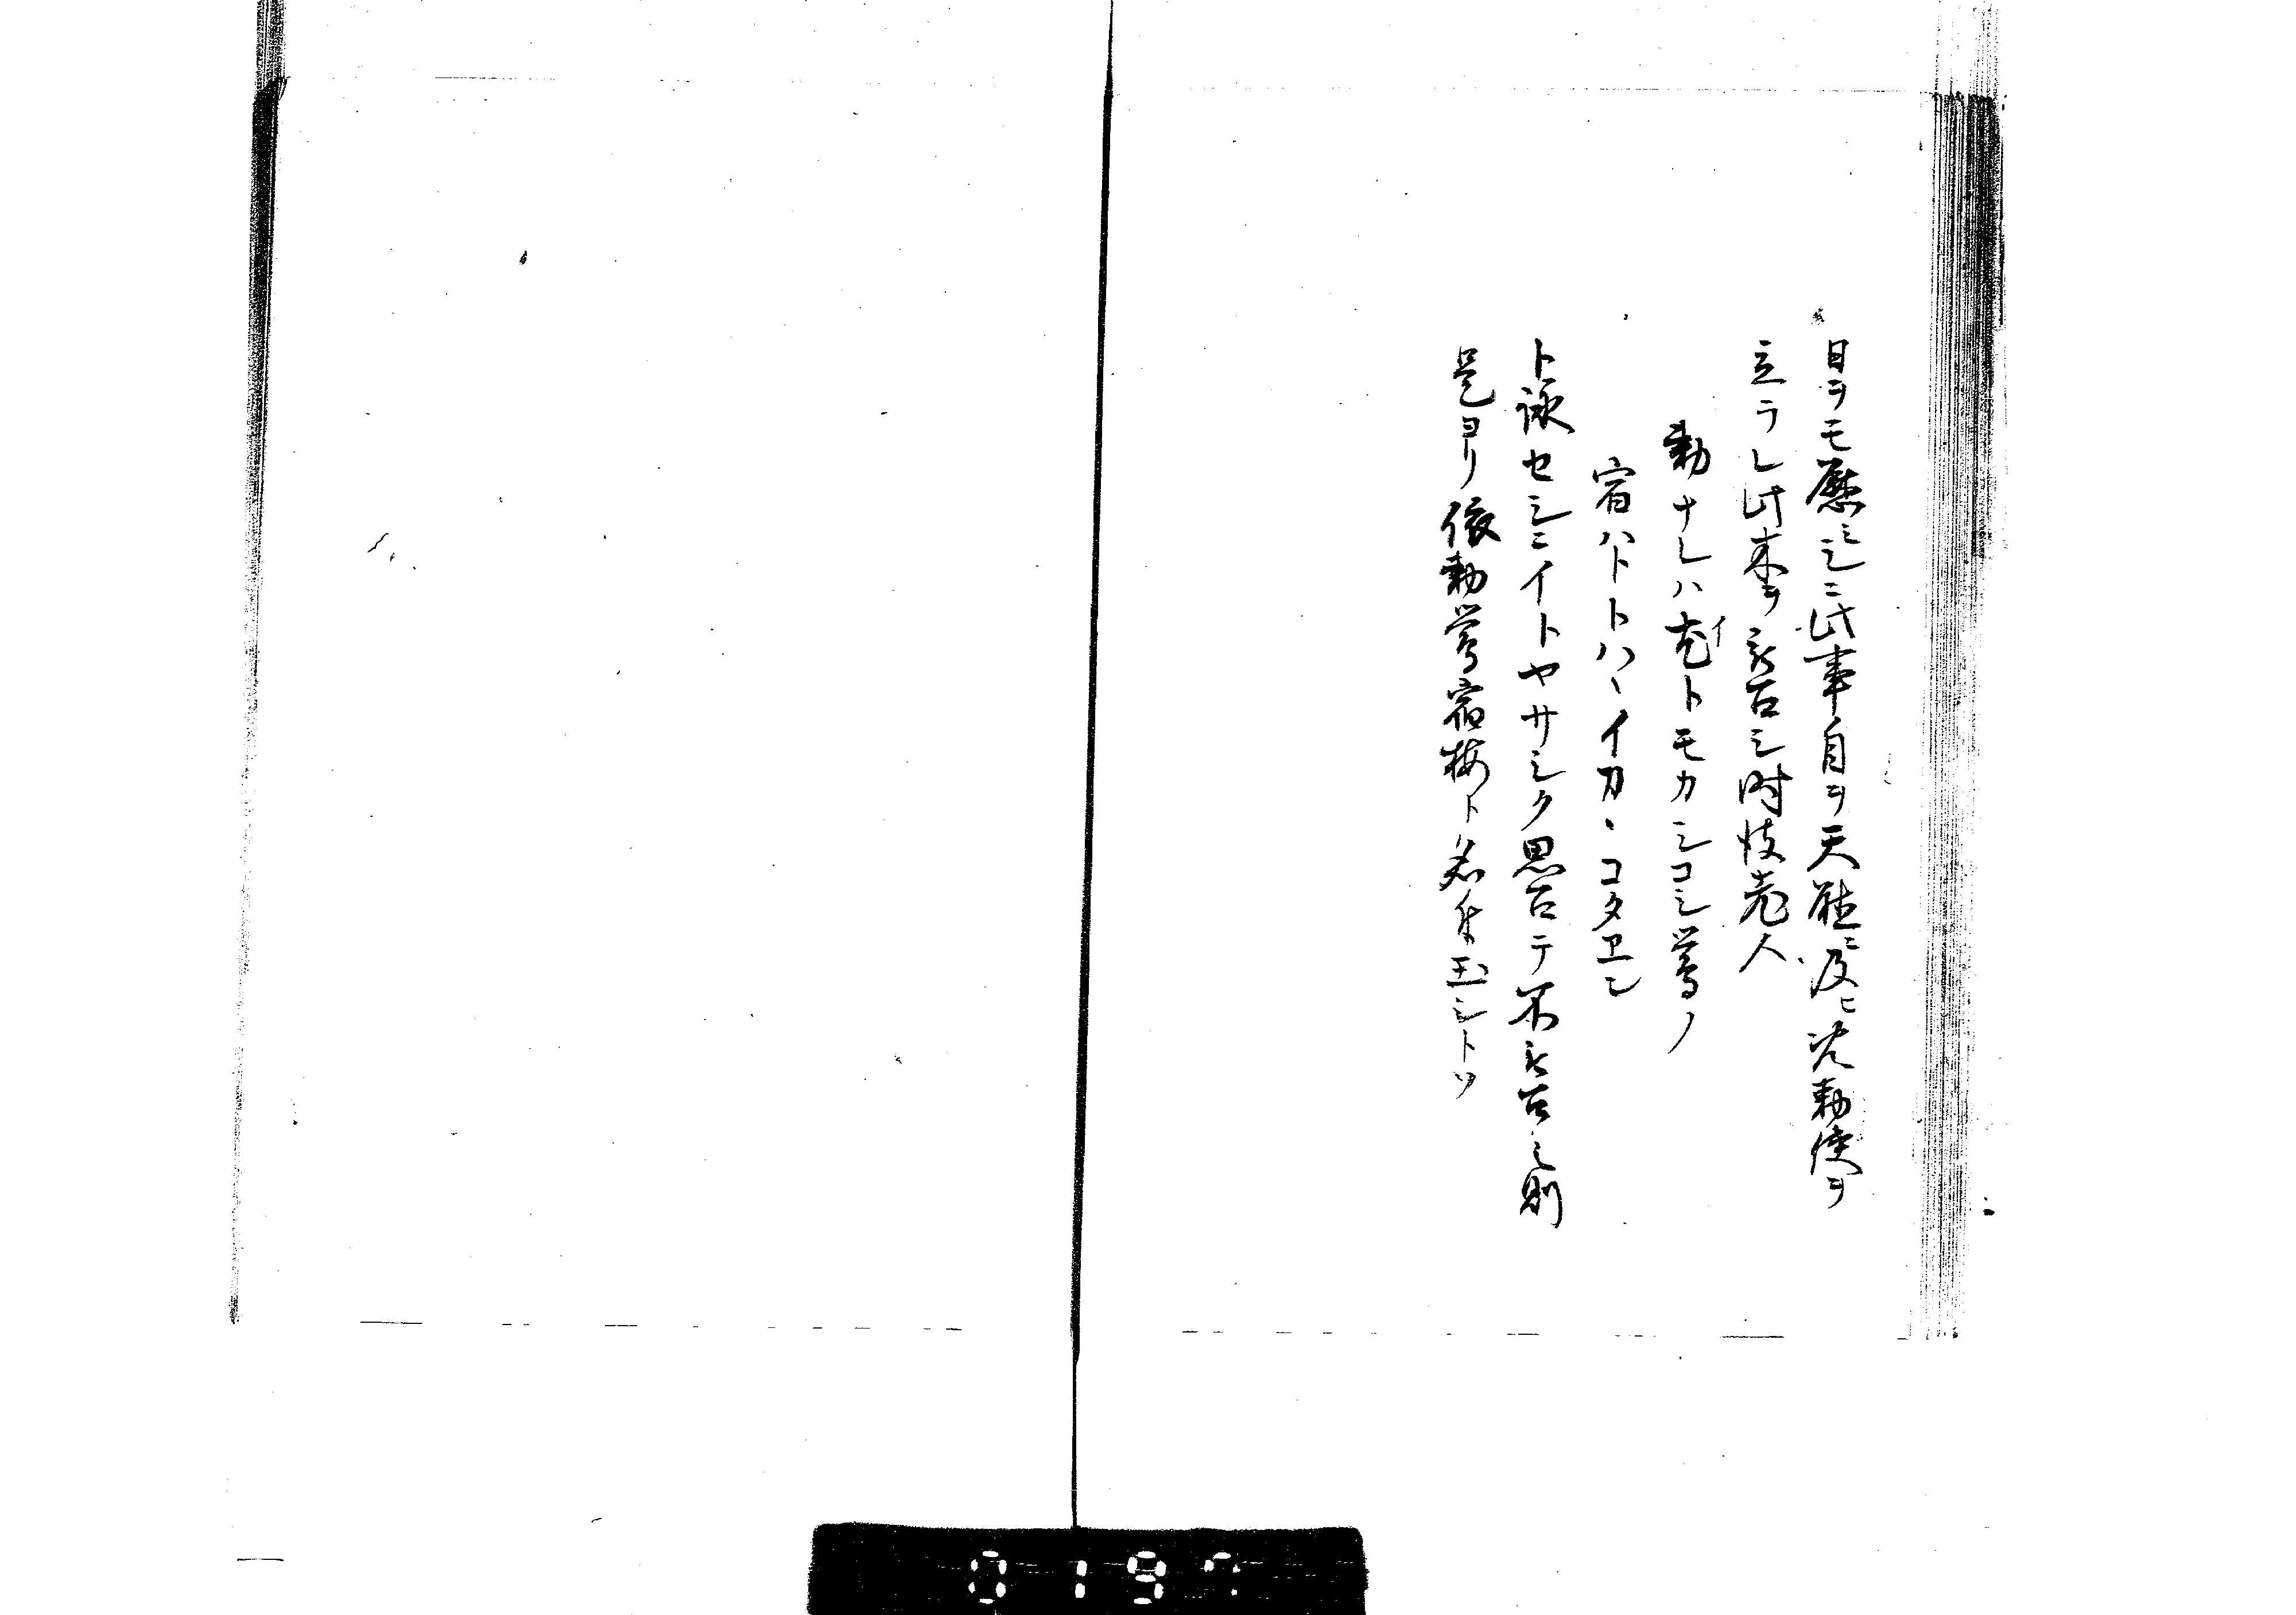 日ヲモ歴シニ此事自ヲ天聴ニ及ヒ况勅使ヲ
立ラレ此木ヲ召シ時彼老人
勅ナレハイトモカシコシ鶯ノ
宿ハトトハヽイカヽコタヱン
ト詠セシニイトヤサシク思召テ不召之則
是ヨリ依勅鶯宿梅ト名付玉シトソ
0197